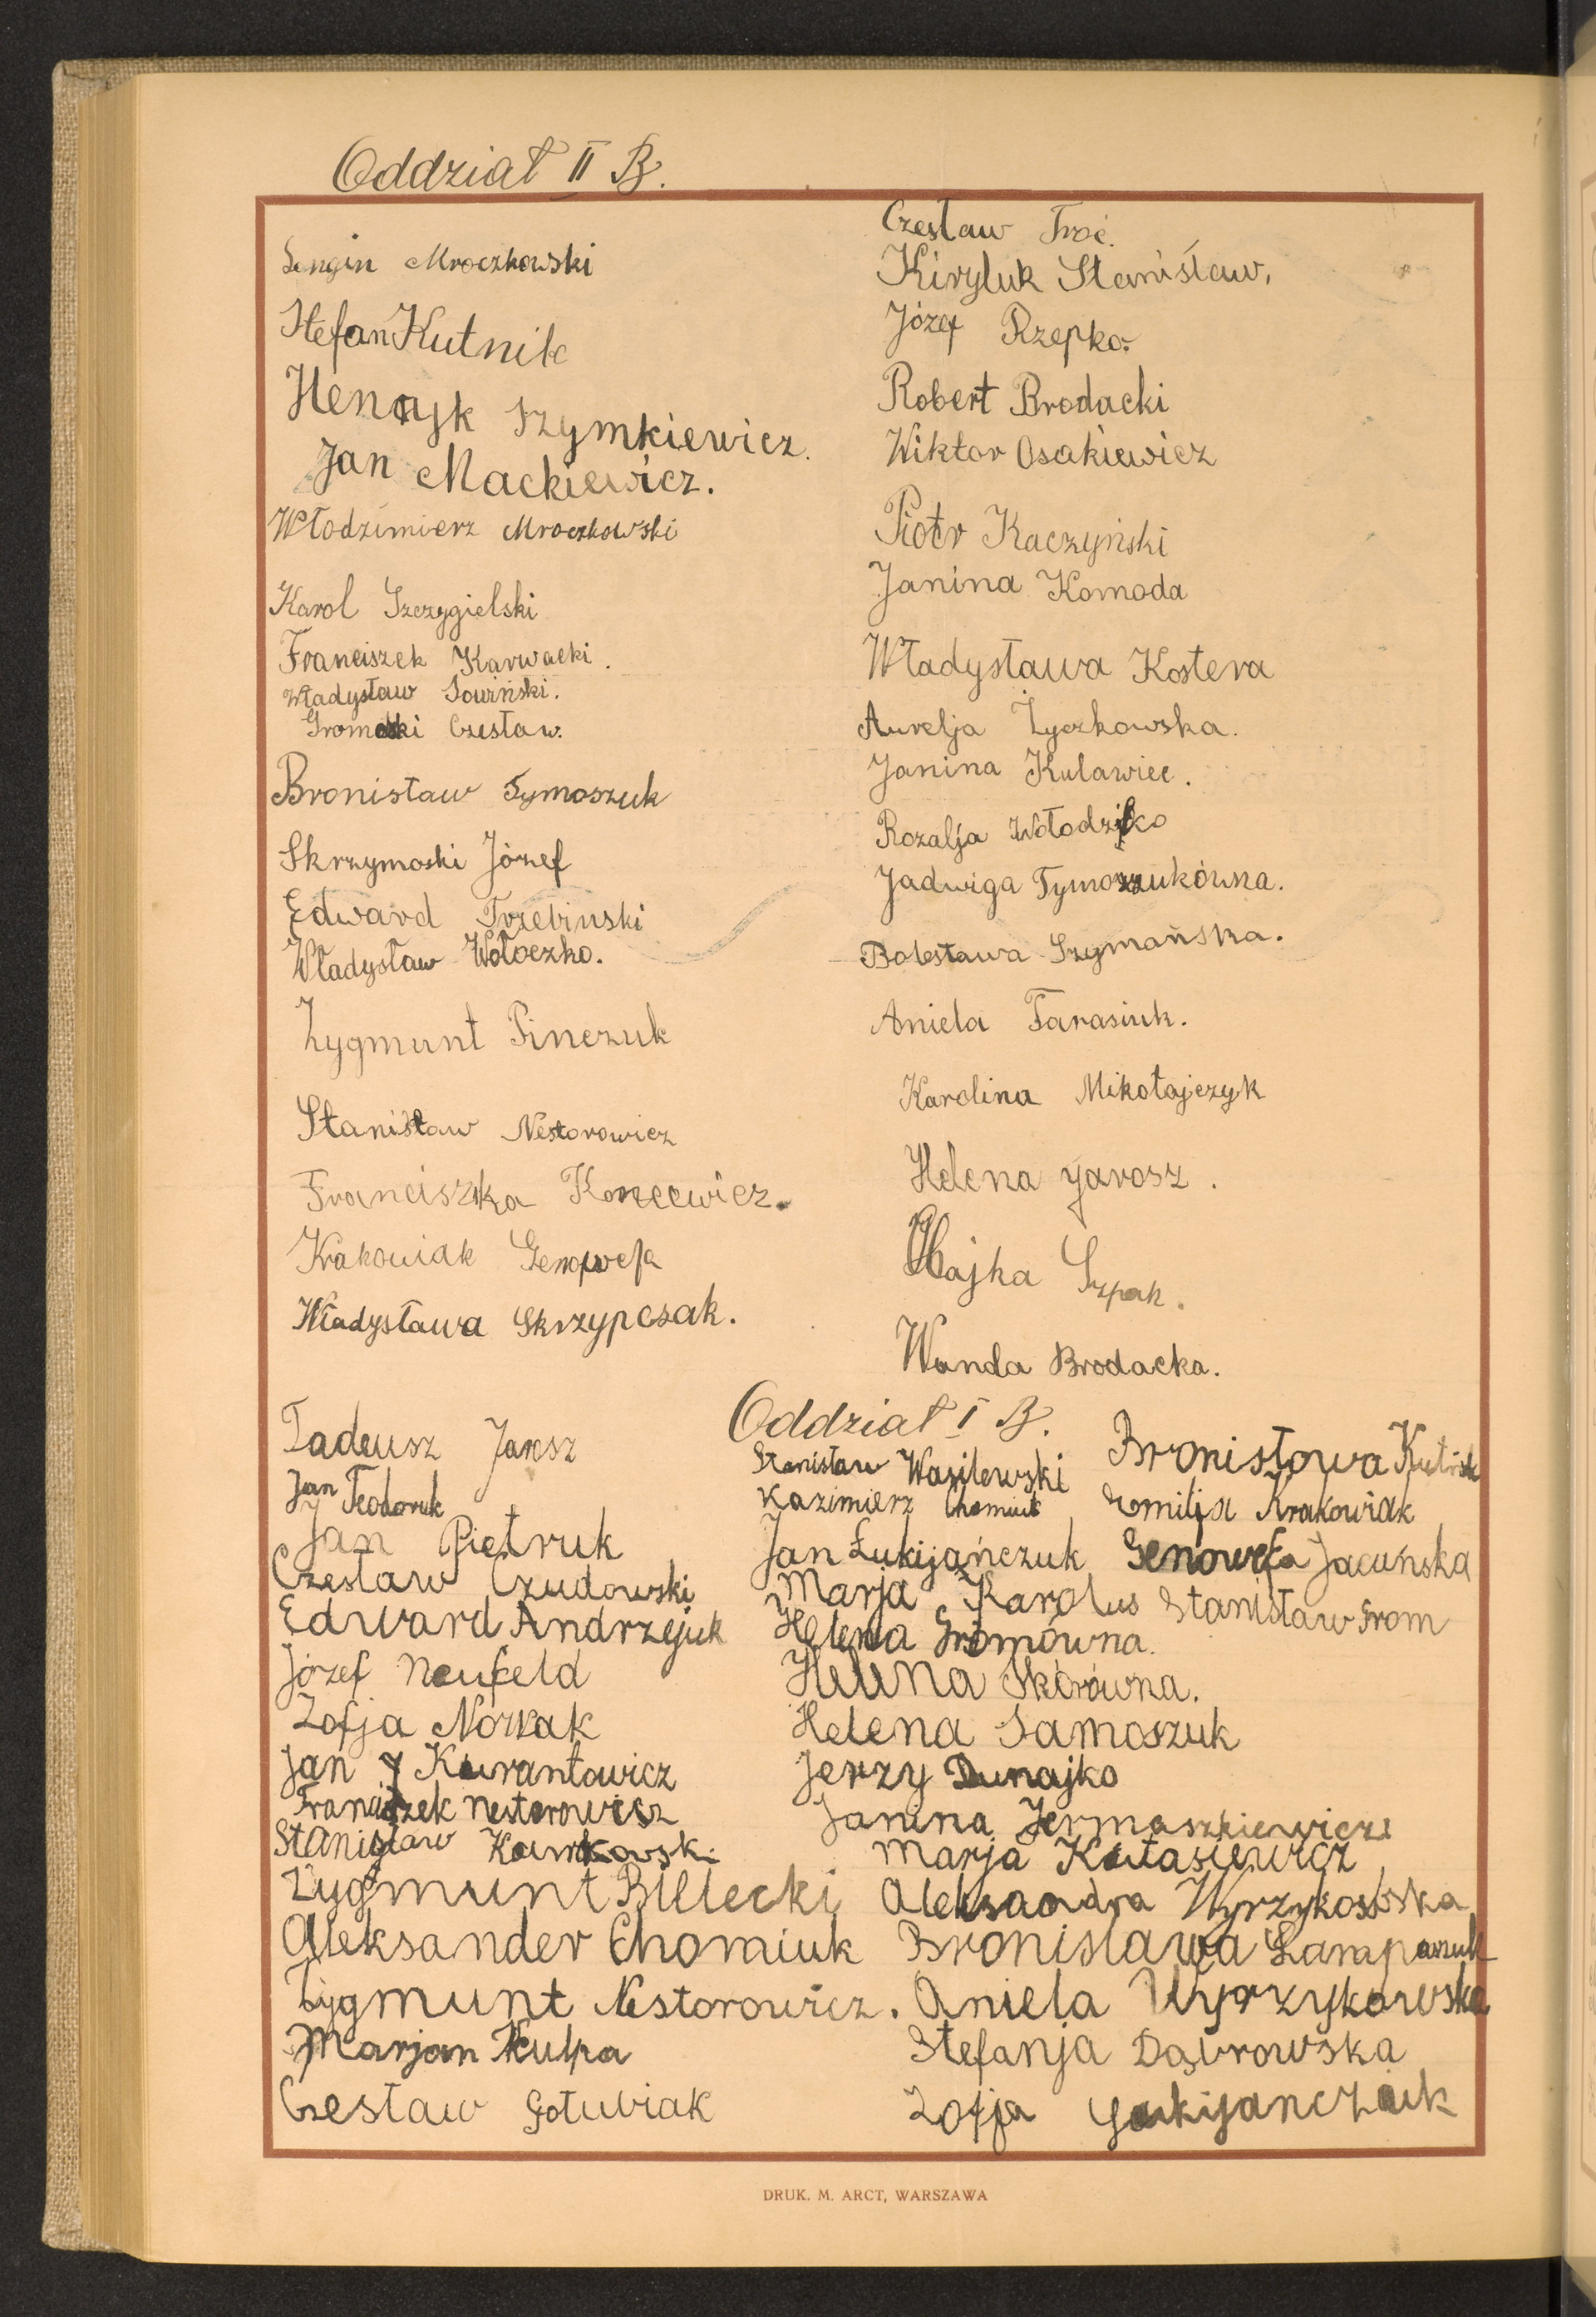 Oddział II B.
Longin Mroczkowski
Stefan Kutnik
Henryk Szymkiewicz.
Jan Mackiewicz.
Włodzimierz Mroczkowski
Karol Szczygielski
Franciszek Karwacki.
Władysław Sowiński.
Gromadzki Czesław.
Bronisław Tymoszuk
Skrzymoski Józef
Edward Trzebinski
Władysław Wołoczko.
Zygmunt Pinczuk
Stanisław Nestorowicz
Franciszka Koncewicz.
Krakowiak Genowefa
Władysława Skrzypczak.
Czesław Troć.
Kiryluk Stanisław.
Józef Rzepko.
Robert Brodacki
Wiktor Osakiewicz
Piotr Kaczyński
Janina Komoda
Władysława Kostera
Aurelja Życzkowska.
Janina Kulawiec.
Rozalja Wołodzko
Jadwiga Tymoszukówna.
Bolesława Szymańska.
Aniela Tarasiuk.
Karolina Mikołajczyk
Helena Jarosz.
Chajka Szpak.
Wanda Brodacka.
Oddział I B.
Tadeusz Jarosz
Jan Teodoruk
Jan Pietruk
Czesław Czudowski
Edward Andrzejuk
Józef Neufeld
Zofja Nowak
Jan Kurantowicz
Franciszek Nestorowicz
Stanisław Kawkowski
Zygmunt Bielecki
Aleksander Chomiuk
Zygmunt Nestorowicz.
Marjan Kulpa
Czesław Gołubiak
Stanisław Wasilewski
Kazimierz Chomiuk
Jan Łukijańczuk
Marja Karolus
Helena Gromówna.
Helena Skórówna.
Helena Samoszuk
Jerzy Dunajko
Janina Jermaszkiewicz
Marja Kutasiewicz
Aleksandra Wyrzykowska
Bronisława
Aniela Wyrzykowska
Stefanja Dąbrowska
Zofja
Bronisława Kutnik
Emilja Krakowiak
Genowefa Jacuńska
Stanisław Grom
DRUK. M. ARCT, WARSZAWA